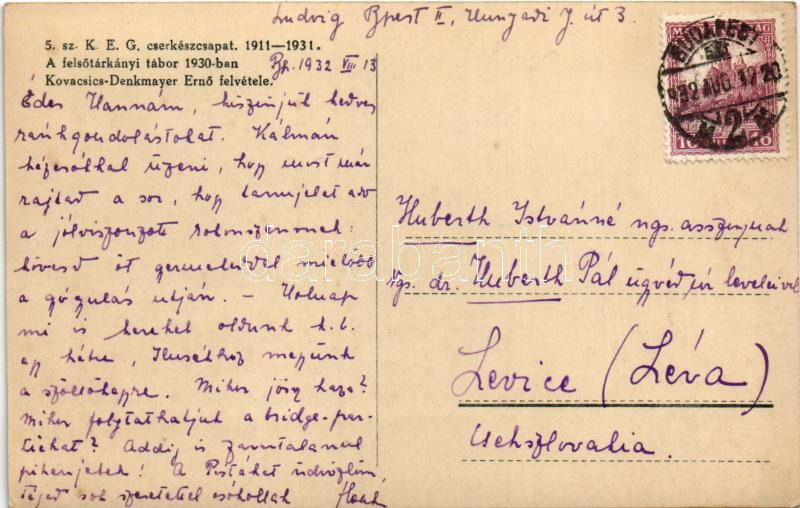 Ludvig Bpest II, Hunyadi J. út 3.
5. sz. K. E. G. cserkészcsapat. 1911—1931.
A felsőtárkányi tábor 1930-ban
Kovacsics-Denkmayer Ernő felvétele.
Bp. 1932 VIII 13
Édes Hannám, köszönjük kedves
ránkgondolástokat. Kálmán
üzeni, hogy most már
rajtad a sor, hogy tanujelet add
a jólviszonzott rokonszenvnek:
kövesd őt gyermekeiddel mielőbb
a gógulás utján. — Holnap
mi is kereket oldunk k.b.
egy hétre, Ilusékhoz megyünk
a szőllőhegyre. Mikor jösz haza?
Mikor folytathatjuk a bridge-par-
tieket? Addig is zavartalanul
pihenjetek! A Pistáket üdvözlöm,
Téged sok szeretettel csókollak
Huberth Istvánné ngs. asszonynak
Ngs. dr. Huberth Pál ügyvéd úr leveleivel
Levice (Léva)
Csehszlovakia.
BUDAPEST
932 AUG 12 20
2
darabanth